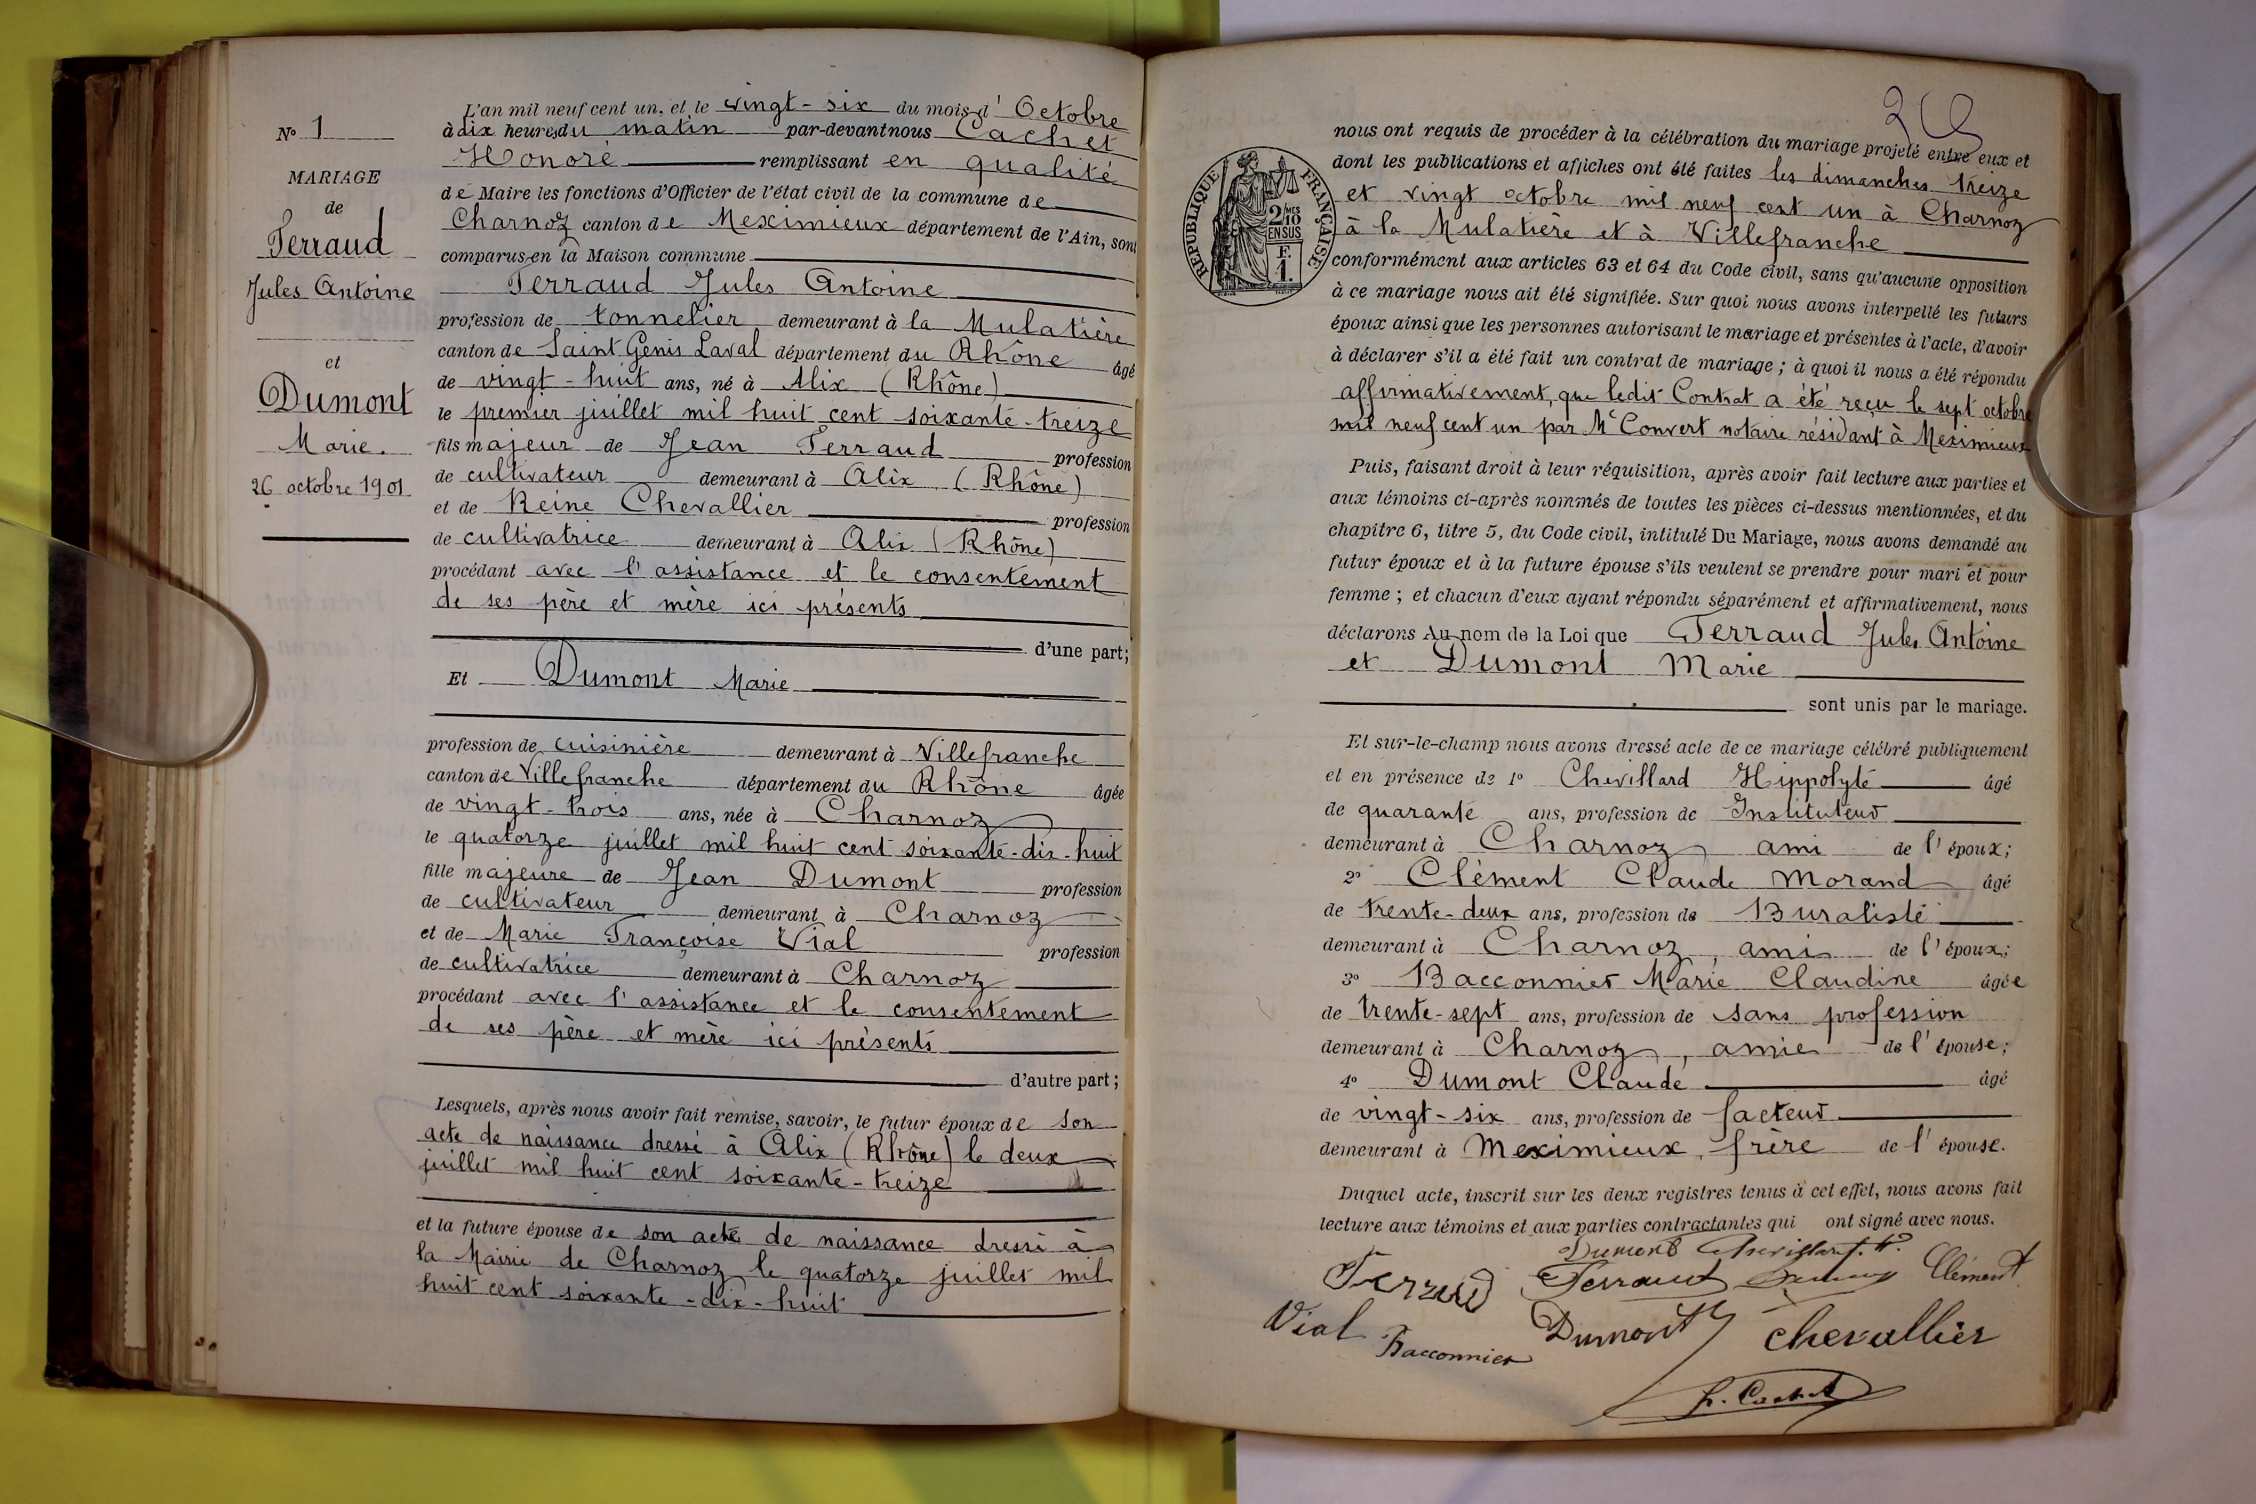 N° 1
MARIAGE
de
Ferraud
Jules Antoine
et
Dumont
Marie.
26 octobre 1901
L'an mil neuf cent un, et le vingt-six du mois d'Octobre
à dix heures du matin par-devant nous Cachet
Honoré remplissant en qualité
de Maire les fonctions d'Officier de l'état civil de la commune de
Charnoz canton de Meximieux département de l'Ain, sont
comparus en la Maison commune
Ferraud Jules Antoine
profession de tonnelier demeurant à la Mulatière
canton de Saint Genis Laval département du Rhône âgé
de vingt-huit ans, né à Alix (Rhône)
le premier juillet mil huit cent soixante-treize
fils majeur de Jean Ferraud profession
de cultivateur demeurant à Alix (Rhône)
et de Reine Chevallier profession
de cultivatrice demeurant à Alix (Rhône)
procédant avec l'assistance et le consentement
de ses père et mère ici présents
d'une part;
Et Dumont Marie
profession de cuisinière demeurant à Villefranche
canton de Villefranche département du Rhône âgée
de vingt-trois ans, née à Charnoz
le quatorze juillet mil huit cent soixante-dix-huit
fille majeure de Jean Dumont profession
de cultivateur demeurant à Charnoz
et de Marie Françoise Vial profession
de cultivatrice demeurant à Charnoz
procédant avec l'assistance et le consentement
de ses père et mère ici présents
d'autre part;
Lesquels, après nous avoir fait remise, savoir, le futur époux de son
acte de naissance dressé à Alix (Rhône) le deux
juillet mil huit cent soixante-treize
et la future épouse de son acte de naissance dressé à
la Mairie de Charnoz le quatorze juillet mil
huit cent soixante-dix-huit
RÉPUBLIQUE FRANÇAISE
2 MES
10
EN SUS
F.
1.
nous ont requis de procéder à la célébration du mariage projeté entre eux et
dont les publications et affiches ont été faites les dimanches treize
et vingt octobre mil neuf cent un à Charnoz
à la Mulatière et à Villefranche
conformément aux articles 63 et 64 du Code civil, sans qu'aucune opposition
à ce mariage nous ait été signifiée. Sur quoi nous avons interpellé les futurs
époux ainsi que les personnes autorisant le mariage et présentes à l'acte, d'avoir
à déclarer s'il a été fait un contrat de mariage; à quoi il nous a été répondu
affirmativement, que ledit Contrat a été reçu le sept octobre
mil neuf cent un par Me Convert notaire résidant à Meximieux
Puis, faisant droit à leur réquisition, après avoir fait lecture aux parties et
aux témoins ci-après nommés de toutes les pièces ci-dessus mentionnées, et du
chapitre 6, titre 5, du Code civil, intitulé Du Mariage, nous avons demandé au
futur époux et à la future épouse s'ils veulent se prendre pour mari et pour
femme; et chacun d'eux ayant répondu séparément et affirmativement, nous
déclarons Au nom de la Loi que Ferraud Jules Antoine
et Dumont Marie
sont unis par le mariage.
Et sur-le-champ nous avons dressé acte de ce mariage célébré publiquement
et en présence de 1° Chevillard Hippolyte âgé
de quarante ans, profession de Instituteur
demeurant à Charnoz ami de l'époux;
2° Clément Claude Morand âgé
de trente-deux ans, profession de Buraliste
demeurant à Charnoz, ami de l'époux;
3° Bacconnier Marie Claudine âgée
de trente-sept ans, profession de sans profession
demeurant à Charnoz, amie de l'épouse;
4° Dumont Claude âgé
de vingt-six ans, profession de facteur
demeurant à Meximieux, frère de l'épouse.
Duquel acte, inscrit sur les deux registres tenus à cet effet, nous avons fait
lecture aux témoins et aux parties contractantes qui ont signé avec nous.
Dumont Chevillard. H.
Ferraud Ferraud Clément
Vial Bacconnier Dumont Chevallier
h. Cachet